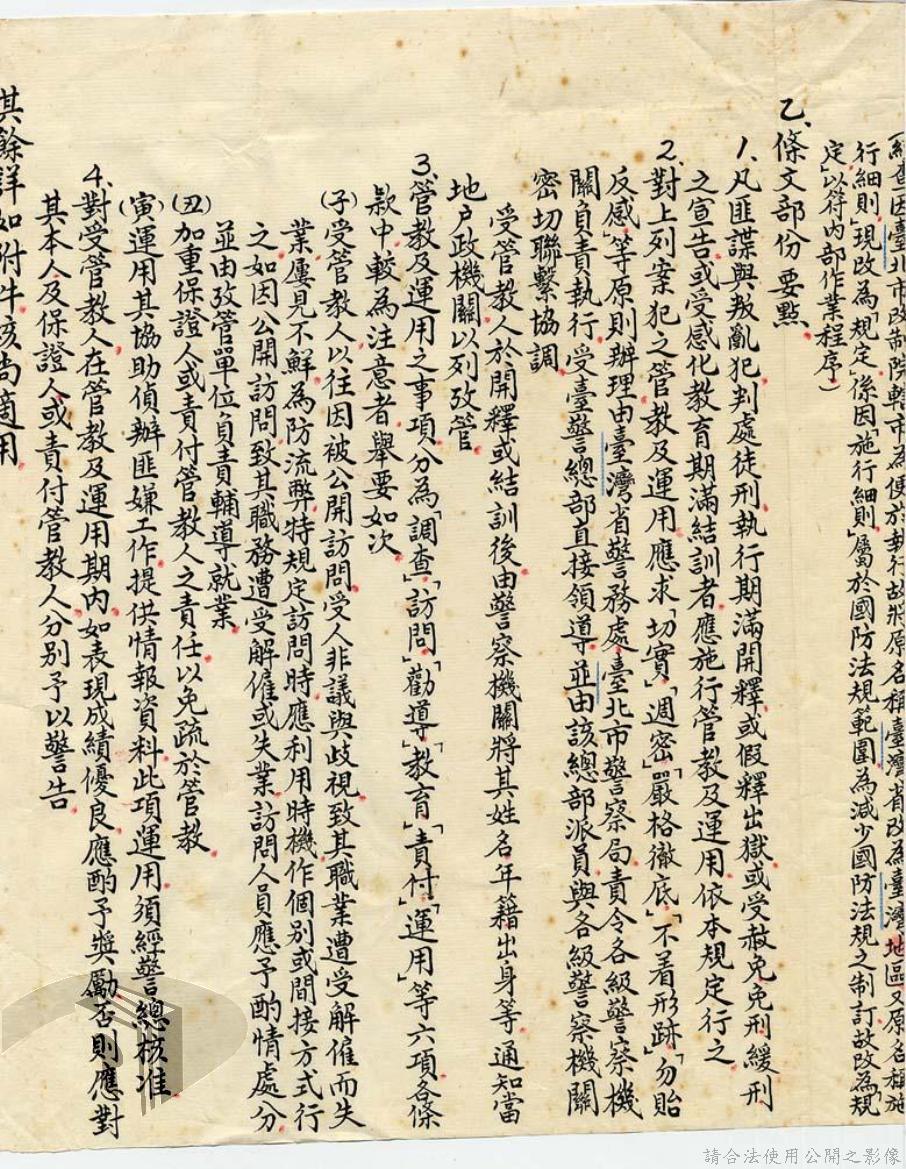 (經查因臺北市改制院轄市為便於執行故將原名稱臺灣省改為臺灣地區又原名稱施
行細則」現改為「規定」係因「施行細則」屬於國防法規範圍為減少國防法規之制訂故改為「規
定」以符內部作業程序)
乙、條文部份要點、
1、凡匪諜與叛亂犯判處徒刑執行期滿開釋或假釋出獄或受赦免免刑緩刑
之宣告或受感化教育期滿結訓者應施行管教及運用依本規定行之
2、對上列案犯之管教及運用應求「切實」「週密」「嚴格徹底」「不着形跡」「勿貽
反感」等原則辦理由臺灣省警務處臺北市警察局責令各級警察機
關負責執行受臺警總部直接領導並由該總部派員與各級警察機關
密切聯繫協調
受管教人於開釋或結訓後由警察機關將其姓名年籍出身等通知當
地户政機關以列攷管
3、管教及運用之事項分為「調查」「訪問」「勸導」「教育」「責付」「運用」等六項各條
欵中較為注意者舉要如次
(子)受管教人以往因被公開訪問受人非議與歧視致其職業遭受解僱而失
業屢見不鮮為防流弊特規定訪問時應利用時機作個別或間接方式行
之如因公開訪問致其職務遭受解僱或失業訪問人員應予酌情處分
並由攷管單位負責輔導就業
(丑)加重保證人或責付管教人之責任以免疏於管教
(寅)運用其協助偵辦匪嫌工作提供情報資料此項運用須經警總核准
4、對受管教人在管教及運用期內如表現成績優良應酌予獎勵否則應對
其本人及保證人或責付管教人分別予以警告
其餘詳如附件核尚適用
請合法使用公開之影像